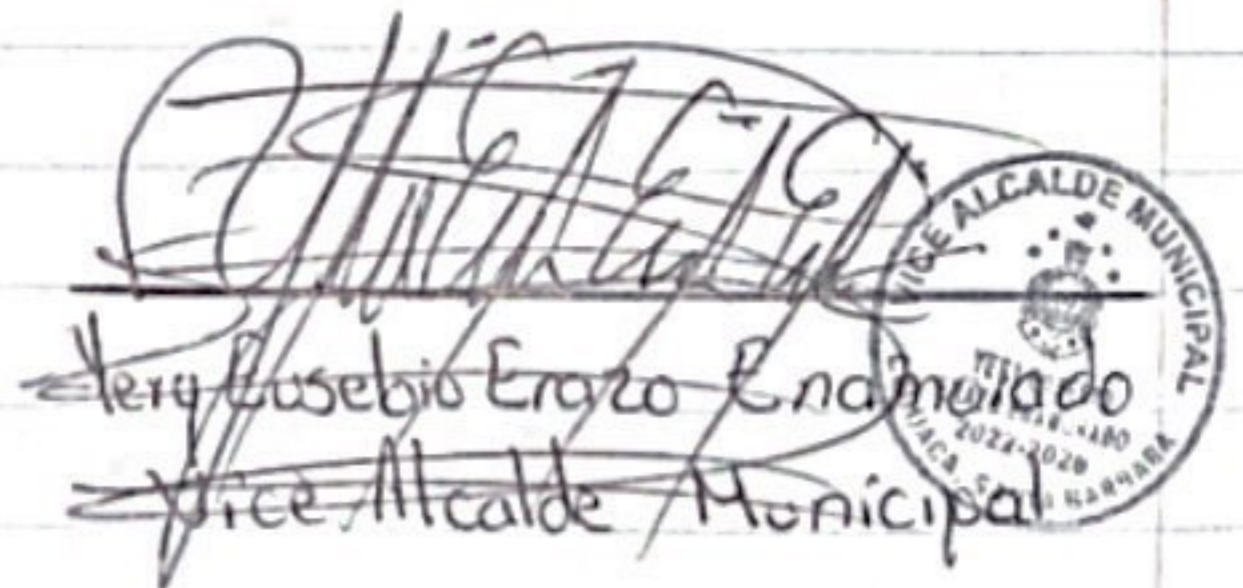 Yery Eusebio Erazo Enamorado
Vice Alcalde Municipal
VICE ALCALDE MUNICIPAL
2022-2026